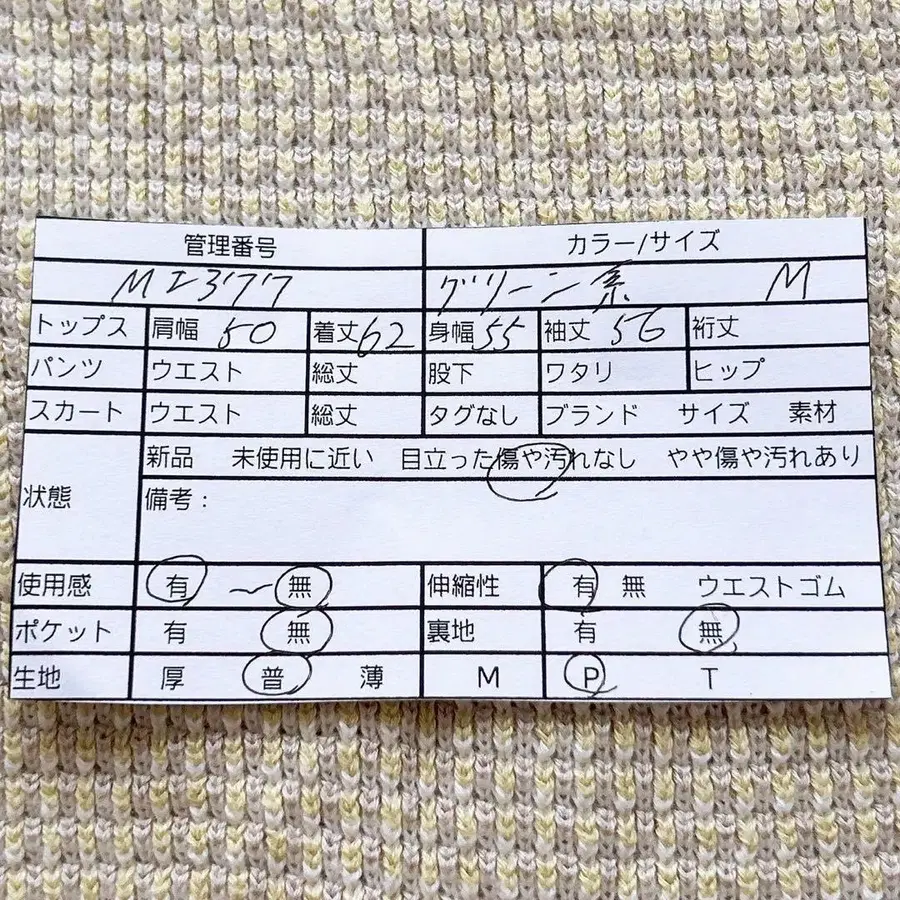 管理番号 カラー/サイズ
MI377 グリーン系 M
トップス 肩幅 50 着丈 62 身幅 55 袖丈 56 裄丈
パンツ ウエスト 総丈 股下 ワタリ ヒップ
スカート ウエスト 総丈 タグなし ブランド サイズ 素材
状態 新品 未使用に近い 目立った傷や汚れなし やや傷や汚れあり
備考:
使用感 有 〜 無 伸縮性 有 無 ウエストゴム
ポケット 有 無 裏地 有 無
生地 厚 普 薄 M P T